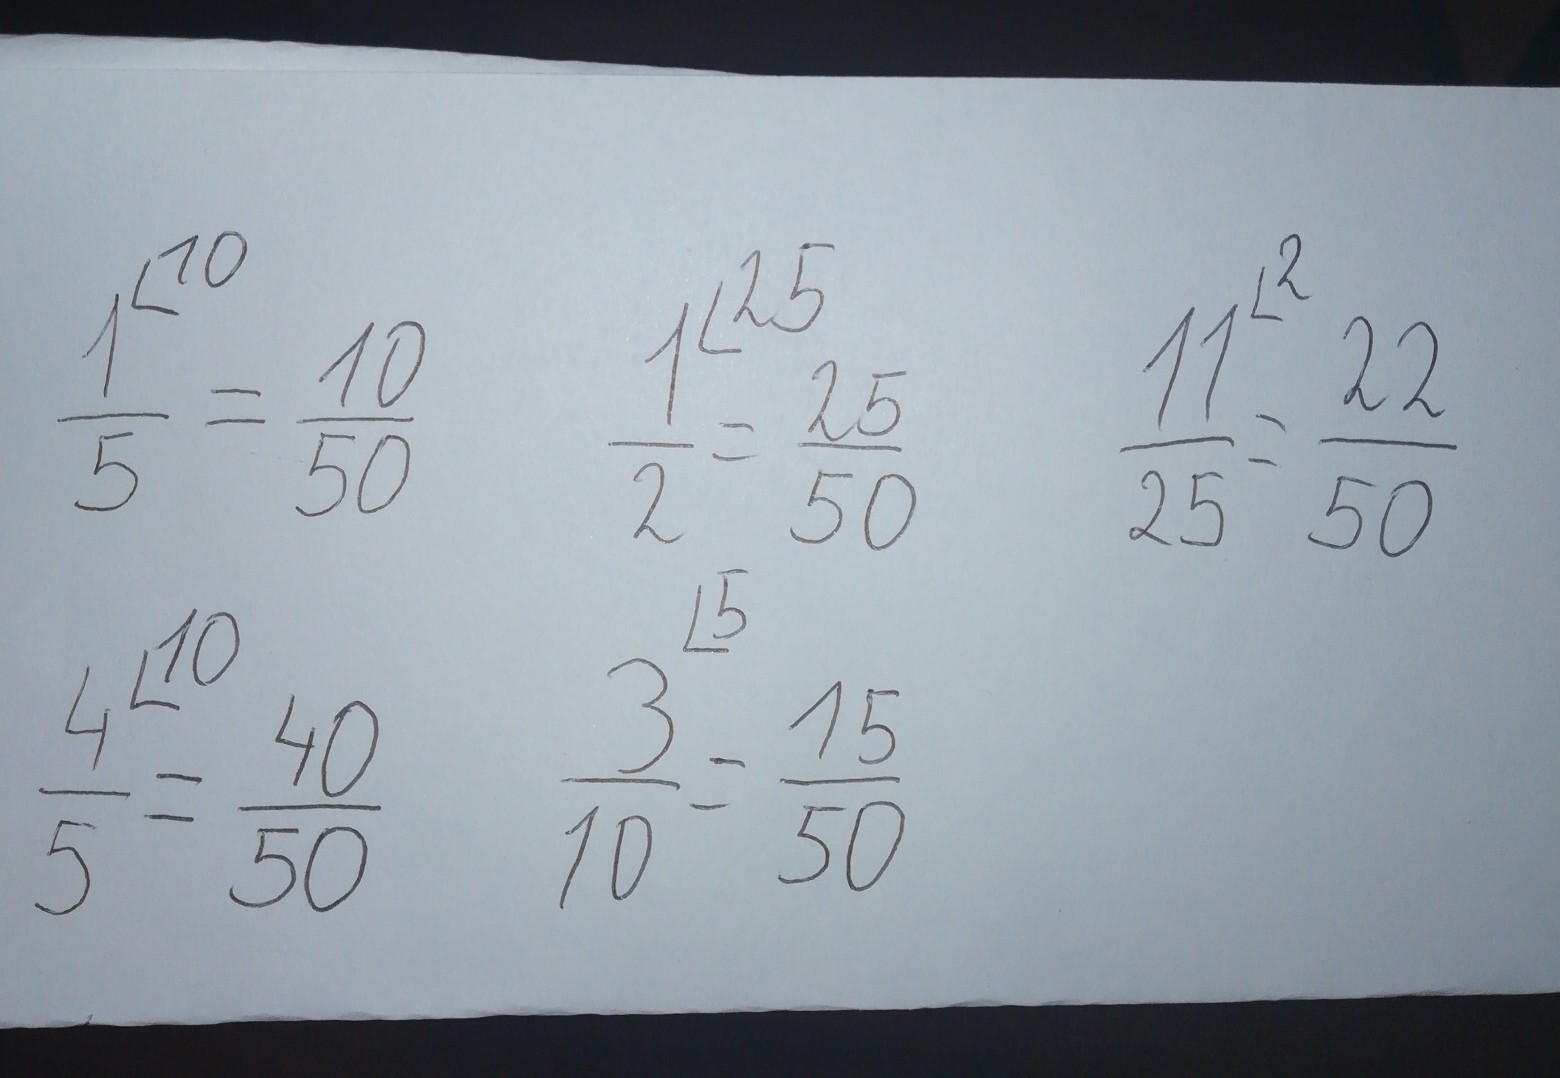 1⌊10/5 = 10/50   1⌊25/2 = 25/50   11⌊2/25 = 22/50
4⌊10/5 = 40/50   3⌊5/10 = 15/50